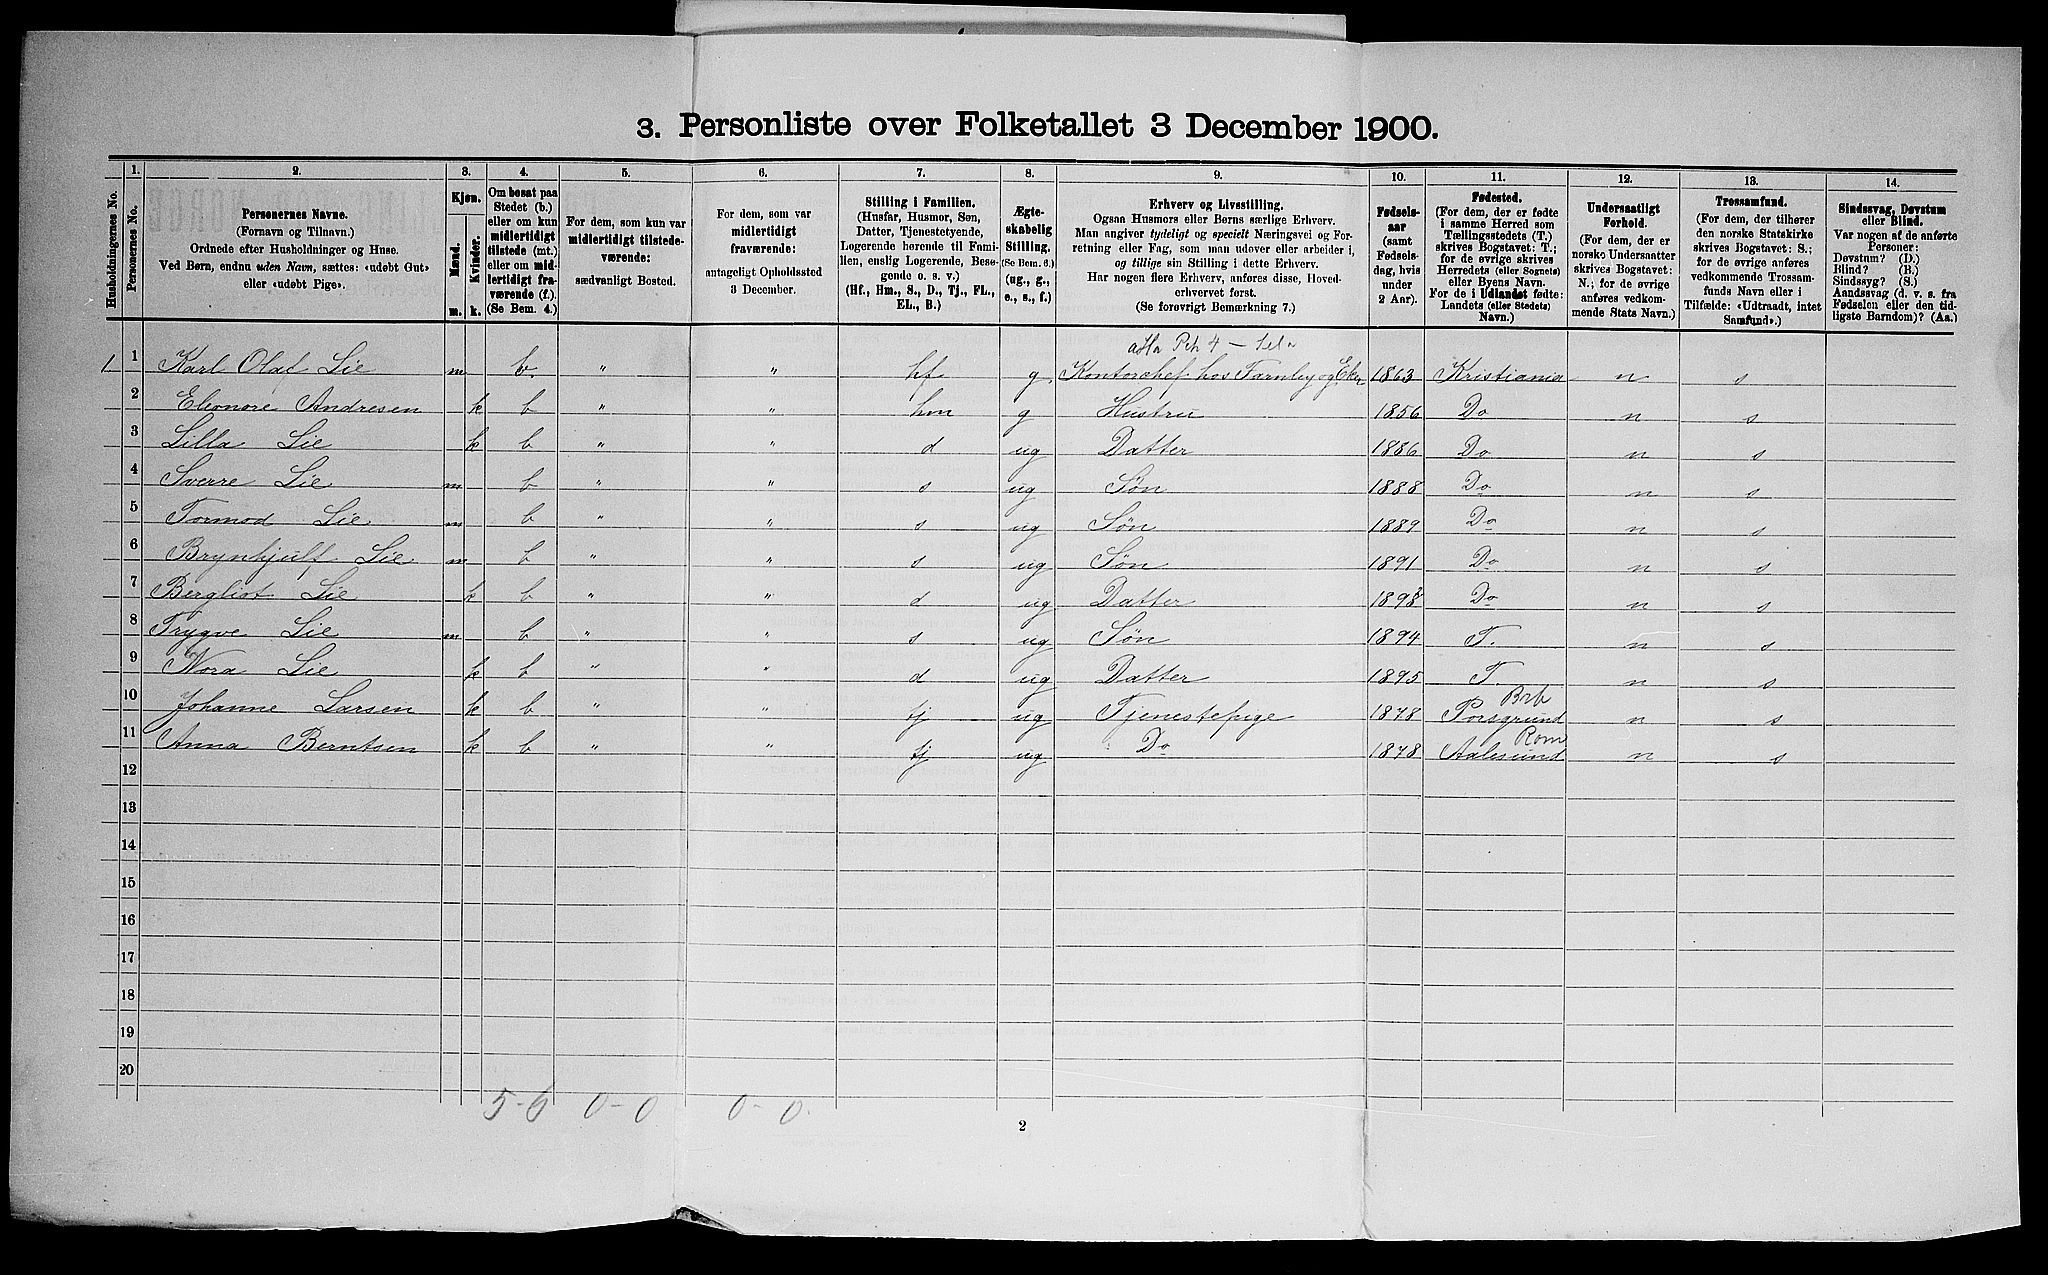 3. Personliste over Folketallet 3 December 1900.
Husholdningernes No.
1.
Personernes No.
2.
Personernes Navne.
(Fornavn og Tilnavn.)
Ordnede efter Husholdninger og Huse.
Ved Børn, endnu uden Navn, sættes: «udøbt Gut»
eller «udøbt Pige».
3.
Kjøn.
Mænd.
Kvinder.
m. k.
4.
Om bosat paa
Stedet (b.)
eller om kun
midlertidigt
tilstede (mt.)
eller om mid-
lertidigt fra-
værende (f.)
(Se Bem. 4.)
5.
For dem, som kun var
midlertidigt tilstede-
værende:
sædvanligt Bosted.
6.
For dem, som var
midlertidigt
fraværende:
antageligt Opholdssted
3 December.
7.
Stilling i Familien.
(Husfar, Husmor, Søn,
Datter, Tjenestetyende,
Logerende hørende til Fami-
lien, enslig Logerende, Besø-
gende o. s. v.)
(Hf., Hm., S., D., Tj., FL.,
EL., B.)
8.
Ægte-
skabelig
Stilling.
(Se Bem. 6.)
(ug., g.,
e., s., f.)
9.
Erhverv og Livsstilling.
Ogsaa Husmors eller Børns særlige Erhverv.
Man angiver tydeligt og specielt Næringsvei og For-
retning eller Fag, som man udover eller arbeider i,
og tillige sin Stilling i dette Erhverv.
Har nogen flere Erhverv, anføres disse, Hoved-
erhvervet først.
(Se forøvrigt Bemærkning 7.)
10.
Fødsels-
aar
(samt
Fødsels-
dag, hvis
under
2 Aar).
11.
Fødested.
(For dem, der er fødte
i samme Herred som
Tællingsstedets (T.)
skrives Bogstavet: T.;
for de øvrige skrives
Herredets (eller Sognets)
eller Byens Navn.
For de i Udlandet fødte:
Landets (eller Stedets)
Navn.)
12.
Undersaatligt
Forhold.
(For dem, der er
norske Undersaatter
skrives Bogstavet:
N.; for de øvrige
anføres vedkom-
mende Stats Navn.)
13.
Trossamfund.
(For dem, der tilhører
den norske Statskirke
skrives Bogstavet: S.;
for de øvrige anføres
vedkommende Trossam-
funds Navn eller i
Tilfælde: «Udtraadt, intet
Samfund».)
14.
Sindssvag, Døvstum
eller Blind.
Var nogen af de anførte
Personer:
Døvstum? (D.)
Blind? (B.)
Sindssyg? (S.)
Aandssvag (d. v. s. fra
Fødselen eller den tid-
ligste Barndom)? (Aa.)
1 1 Karl Olaf Lie m b. " " hf g. Kontorchef hos Farnley og Eker 1863 Kristiania n s
2 Eleonore Andresen k b " " hm g Hustru 1856 Do n s
3 Lilla Lie k b " " d ug Datter 1886 Do n s
4 Sverre Lie m b " " s ug Søn 1888 Do n s
5 Tormod Lie m b " " s ug Søn 1889 Do n s
6 Brynhjulf Lie m b " " s ug Søn 1891 Do n s
7 Bergliot Lie k b " " d ug Datter Do n s
8 Trygve Lie m b " " s ug Søn 1894 T. n s
9 Nora Lie k b " " d ug Datter 1895 T. n s
10 Johanne Larsen k b " " tj ug Tjenestepige 1878 Porsgrund Brb n s
11 Anna Berntsen k b " " tj ug Do 1878 Aalesund Rom n s
12
13
14
15
16
17
18
19
20
5-6 0-0 0-0.
2